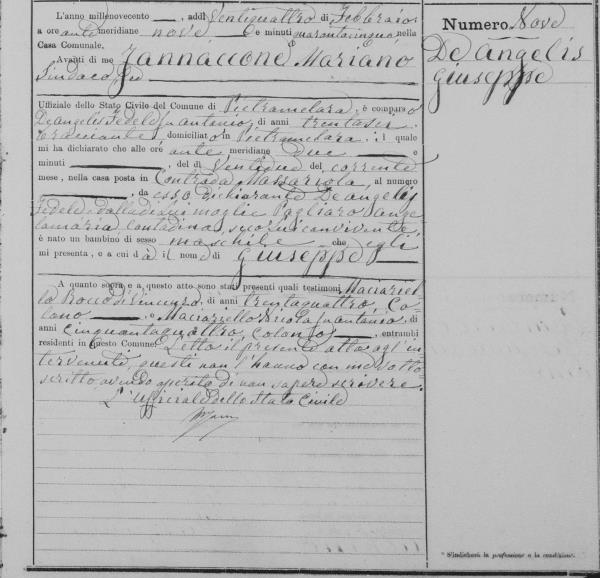 L'anno millenovecento, addì Ventiquattro di Febbraio
a ore ante meridiane nove e minuti quarantacinque, nella
Casa Comunale.
Avanti di me Jannaccone Mariano
Sindaco ed
Uffiziale dello Stato Civile del Comune di Pietramelara, è comparso
De Angelis Fedele fu Antonio, di anni trentasei
bracciante, domiciliato in Pietramelara, il quale
mi ha dichiarato che alle ore ante meridiane due e
minuti, del dì Ventidue del corrente
mese, nella casa posta in Contrada Massariola, al numero
, da esso dichiarante De Angelis
Fedele e dalla di sua moglie Pagliaro Ange-
lamaria, contadina, seco lui convivente,
è nato un bambino di sesso maschile che egli
mi presenta, e a cui dà il nome di Giuseppe
A quanto sopra e a questo atto sono stati presenti quali testimoni Maciariel-
lo Rocco di Vincenzo, di anni trentaquattro, Co-
lono, e Maciariello Nicola fu Antonio, di
anni cinquantaquattro, colono, entrambi
residenti in questo Comune. Letto il presente atto agl'in-
tervenuti, questi non l'hanno con me sotto-
scritto avendo asserito di non sapere scrivere.
L'Uffiziale dello Stato Civile
Numero Nove
De Angelis
Giuseppe
* S'indicherà la professione o la condizione.